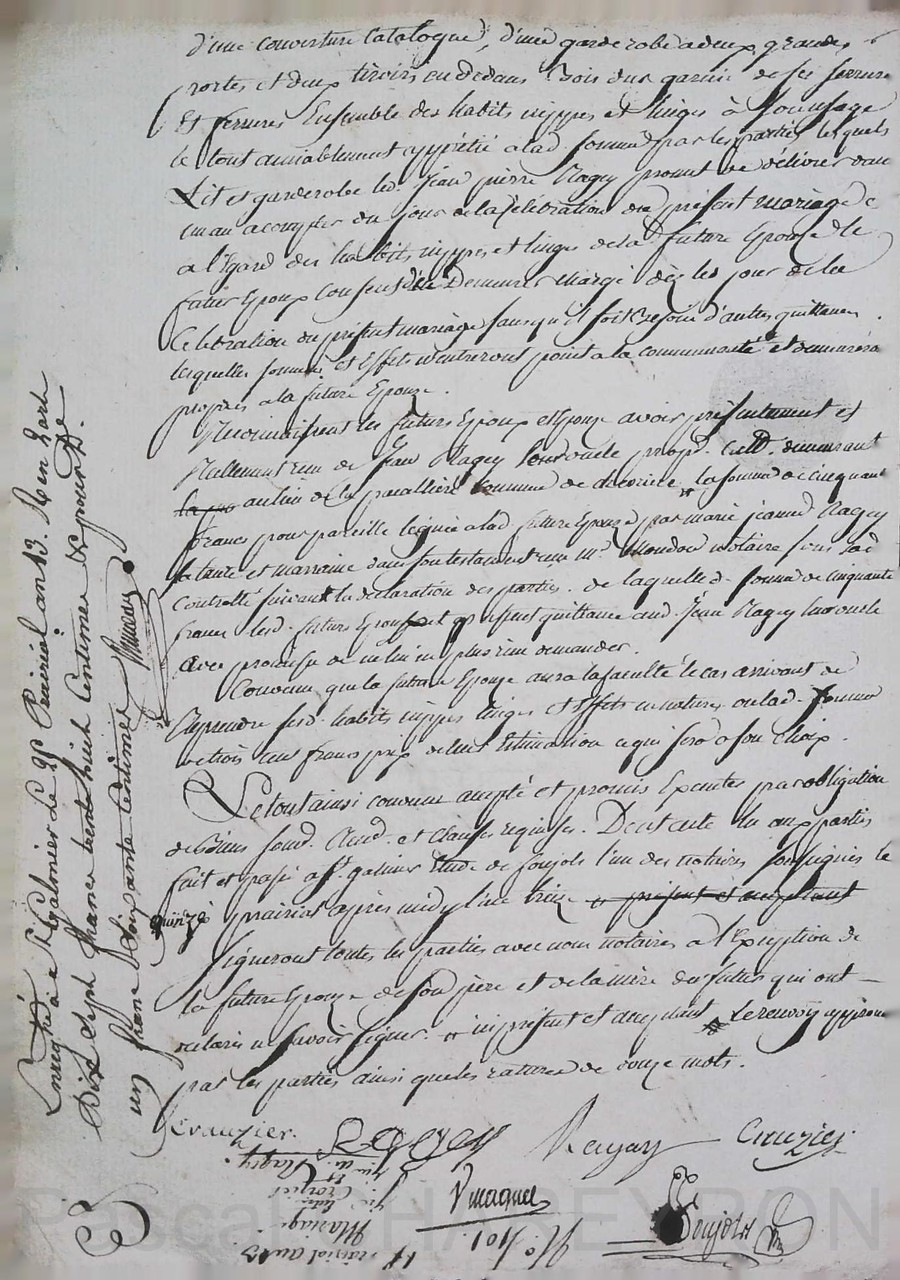 d'une couverture Catalogue, d'une garderobe a deux grandes
portes et deux tiroirs en dedans bois dur garnie de ses serrures
et ferrures Ensemble des habits nippes et linges à son usage
le tout amiablement apprétié a lad. somme par les parties lesquels
Lit et garderobe led. Jean pierre Ragey promet de délivrer dans
un an a compter du jour de la Célébration du présent mariage &
a l'Egard des habits nippes et linges de la d. future Epouse le
futur Epoux consent d'en Demeurer chargé dès les jour de la
Celebration du présent mariage sans qu'il soit besoin d'autre quittance.
lesquelles sommes et Effets n'entreront point a la communauté et demeurera
propres a la future Epouse.
Reconnaissent les futurs Epoux et Epouse avoir présentement et
Réellement reçu de Jean Ragey son oncle prop. Cult. demeurant
au lieu de la commune de la somme de cinquante
francs pour pareille leguée a lad. future Epouse par marie jeanne Ragey
sa tante et marraine dans son testament reçu Me. notaire sous sad
controllé suivant la déclaration des parties. de laquelle d. somme de cinquante
francs lesd. futurs Epoux et present quittance aud. Jean Ragey leur oncle
avec promesse de ne lui en plus rien demander.
Convenu que la future Epouse aura la faculté le cas arrivant de
Reprendre sesd. habits nippes linges et Effets en natures ou lad. somme
de trois cent francs prix de leur Estimation ce qui sera a son choix.
Le tout ainsi convenu accepté et promis Executer par obligation
de Biens soud. Aud. et Clauses requises. Dont acte lu aux parties
fait et passé a St. galmier Etude de soujols l'un des notaires soussignés le
quinze prairial après midy l'an treize et présent et acceptant
signeront toutes les parties avec nous notaires a l'Exception de
la future Epouse de son père et de la mère du futur qui ont
déclaré ne savoir signer. ici présent et acceptant Le renvoy approuvé
par les parties ainsi que les ratures de onze mots.
Crauzier. Ragey Ragey Crauzier
Vmagnes Soujols
No. 101.
Mariage
Enregistré à St. Galmier Le 25 Prairial an 13. Reçu
Dix Sept francs trente huit Centimes & pour De
un franc Soixante Centimes
Pascal CHAREYRON